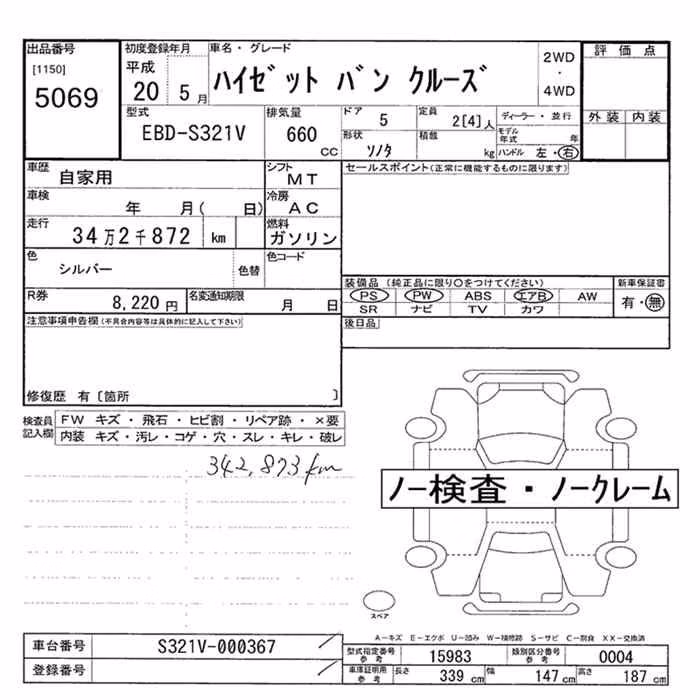 出品番号
[1150]
5069
初度登録年月
平成
20 5月
車名・グレード
ハイゼット バン クルーズ
2WD
・
4WD
評価点
外装 内装
型式
EBD-S321V
排気量
660
cc
ドア 5
定員 2[4]人
ディーラー・並行
形状 ソノタ
積載 kg
モデル年式 年
ハンドル 左・右
車歴
自家用
シフト
MT
セールスポイント(正常に機能するものに限ります)
車検
年 月( 日)
冷房
AC
走行
34万2千872 km
燃料
ガソリン
色
シルバー
色替
色コード
装備品 (純正品に限り○をつけてください)
新車保証書
PS PW ABS エアB AW
SR ナビ TV カワ
有・無
R券
8,220円
名変通知期限
月 日
後日品
注意事項申告欄(不具合内容等は具体的に記入して下さい)
修復歴 有[箇所 ]
検査員記入欄
FW キズ・飛石・ヒビ割・リペア跡・×要
内装 キズ・汚レ・コゲ・穴・スレ・キレ・破レ
342,873km
ノー検査・ノークレーム
スペア
A-キズ E-エクボ U-凹み W-補修跡 S-サビ C-腐食 XX-交換済
車台番号 S321V-000367
登録番号
型式指定番号 参考 15983
類別区分番号 参考 0004
車庫証明用 参考
長さ 339cm 幅 147cm 高さ 187cm